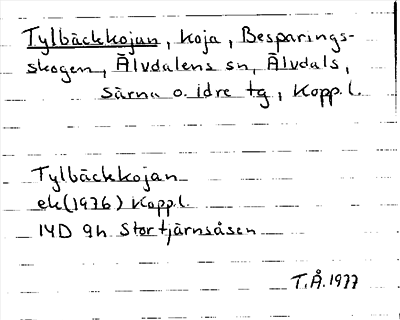 Tylbäckkojan, koja, Besparings-
skogen, Älvdalens sn, Älvdals,
särna o. idre tg, Kopp.l.
Tylbäckkojan
ek (1976) Kopp.l.
14D 9h Stortjärnsåsen
T.Å. 1977